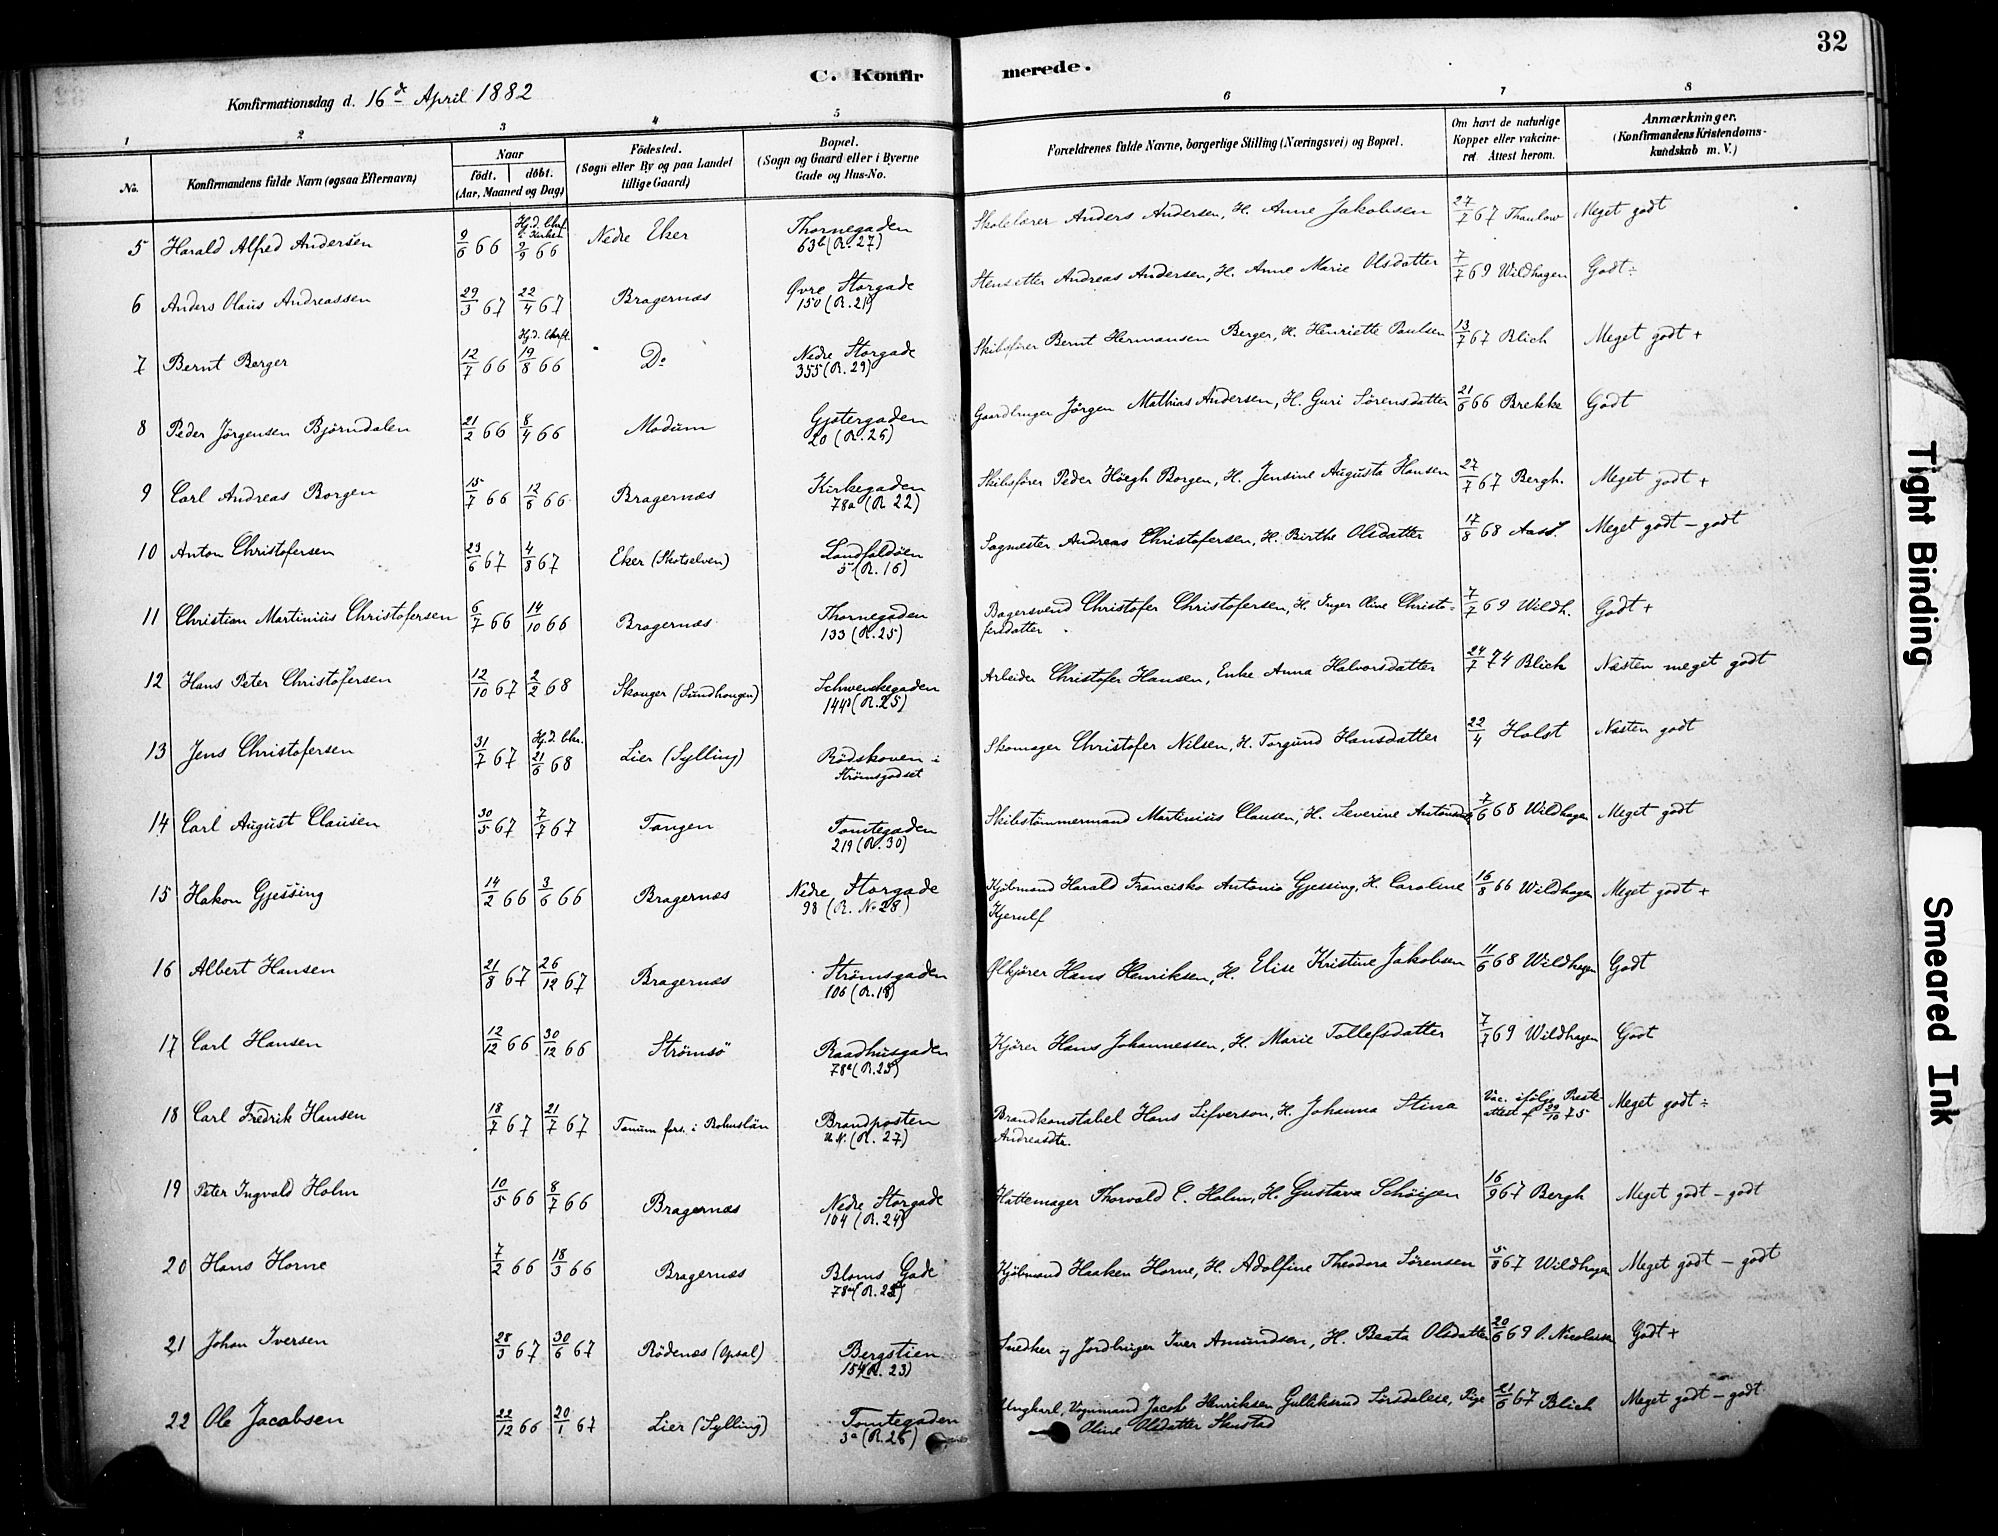 32
C. Konfirmerede.
Konfirmationsdag d. 16d April 1882
1 2 3 4 5 6 7 8
No.
Konfirmandens fulde Navn (ogsaa Efternavn)
Naar
født. døbt.
(Aar, Maaned og Dag)
Fødested.
(Sogn eller By og paa Landet
tillige Gaard)
Bopæl.
(Sogn og Gaard eller i Byerne
Gade og Hus-No.
Forældrenes fulde Navne, borgerlige Stilling (Næringsvei) og Bopæl.
Om havt de naturlige
Kopper eller vakcine-
ret Attest herom.
Anmærkninger.
(Konfirmandens Kristendoms-
kundskab m. V.)
5 Harald Alfred Andersen 9/6 66 Hj.d. Chrf. i Kirken 2/9 66 Nedre Eker Thornegaden 63b (R. 27) Skolelærer Anders Andersen, H. Anne Jakobsen 27/7 67 Thaulow Meget godt
6 Anders Olaus Andreassen 29/3 67 22/4 67 Bragernæs Øvre Storgade 150 (R. 21) Stensetter Andreas Andersen, H. Anne Marie Olsdatter 7/7 69 Wildhagen Godt ÷
7 Bernt Berger 12/7 66 Hj.d. Chrft. 19/8 66 Do Nedre Storgade 355 (R. 29) Skibsfører Bernt Hermansen Berger, H. Henriette Paulsen 13/7 67 Blich Meget godt +
8 Peder Jørgensen Bjørndalen 21/2 66 8/4 66 Modum Gjetergaden 20 (R. 26) Gaardbruger Jørgen Mathias Andersen, H. Guri Sørensdatter 21/6 66 Brekke Godt
9 Carl Andreas Borgen 15/7 66 12/8 66 Bragernæs Kirkegaden 78a (R 22) Skibsfører Peder Höegh Borgen, H. Jensine Augusta Hansen 27/7 67 Bergh. Meget godt +
10 Anton Christofersen 23/6 67 4/8 67 Eker (Skotselven) Landfaldøen 5 (R. 16) Sagmester Andreas Christofersen, H. Birthe Olsdatter 17/8 68 Aass. Meget godt – godt
11 Christian Martinius Christofersen 6/7 66 14/10 66 Bragernæs Thornegaden 133 (R. 25) Bagersvend Christofer Christofersen, H. Inger Oline Christo-
fersdatter 7/7 69 Wildh. Godt +
12 Hans Peter Christofersen 12/10 67 2/2 68 Skouger (Lundhougen) Schwenkegaden 144b (R. 25) Arbeider Christofer Hansen, Enke Anna Halvorsdatter 24/7 74 Blich Næsten meget godt
13 Jens Christofersen 31/7 67 Hj.d. Chr. 21/6 68 Lier (Sylling) Rødskoven i Strømsgodset Skomager Christofer Nilsen, H. Torgund Hansdatter 22/4 Holst Næsten godt
14 Carl August Clausen 30/5 67 7/7 67 Tangen Tomtegaden 219 (R. 30) Skibstømmermand Martinius Clausen, H. Severine 7/6 68 Wildhagen Meget godt
15 Hakon Gjessing 14/2 66 3/6 66 Bragernæs Nedre Storgade 98 (R. No 28) Kjøbmand Harald Francisko Antonio Gjessing, H. Caroline
Kjerulf 16/8 66 Wildhagen Meget godt +
16 Albert Hansen 21/8 67 26/12 67 Bragernæs Strømsgaden 106 (R. 18) Ølkjører Hans Henriksen, H. Elise Kristine Jakobsen 11/6 68 Wildhagen Godt
17 Carl Hansen 12/12 66 30/12 66 Strømsø Raadhusgaden 78e (R. 23) Kjører Hans Johannessen, H. Marie Tollefsdatter 7/7 69 Wildhagen Godt
18 Carl Fredrik Hansen 18/7 67 21/7 67 Tanum fors. i Bohuslän Brandposten u. N. (R. 27) Brandkonstabel Hans Sifverson, H. Johanna Stina
Andreasdtr. Vac. ifølge Præste-
attest af 29/10 75 Meget godt ÷
19 Peter Ingvald Holm 10/5 66 8/7 66 Bragernæs Nedre Storgade 104 (R. 24) Hattemager Thorvald C. Holm, H. Gustava Schöijen 16/9 67 Bergh Meget godt – godt
20 Hans Horne 7/2 66 18/3 66 Bragernæs Bloms Gade 78d (R. 25) Kjøbmand Haaken Horne, H. Adolfine Theodora Sørensen 5/8 67 Wildhagen Meget godt – godt
21 Johan Iversen 28/3 67 30/6 67 Rødenes (Opsal) Bergstien 154 (R. 23) Snedker og Jordbruger Iver Amundsen, H. Beata Olsdatter 20/6 69 O. Nicolaisen Godt +
22 Ole Jacobsen 22/12 66 20/1 67 Lier (Sylling) Tomtegaden 3a (R. 26) Ungkarl, Vognmand Jacob Henriksen Gulleksrud Sørsdalese, Pige
Oline Olsdatter Skustad 21/6 67 Blich Meget godt – godt
Tight Binding
Smeared Ink